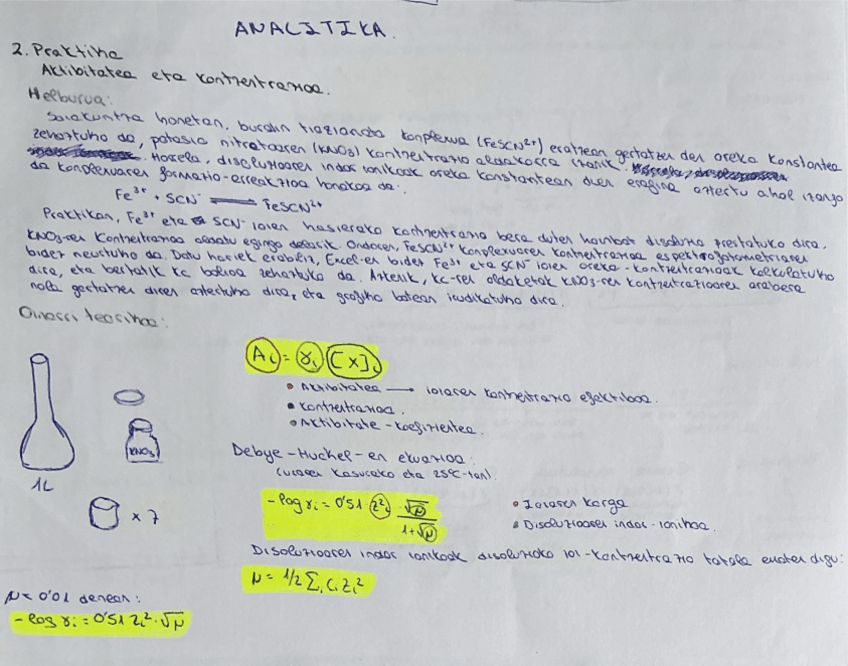 ANALITIKA.
2. Praktika
Aktibitatea eta kontzentrazioa.
Helburua:
Saiakuntza honetan, burdin tiozianato konplexua (FeSCN²⁺) eratzean gertatzen den oreka konstantea
zehaztuko da, potasio nitratoaren (KNO₃) kontzentrazio aldakorra izanik.
Horrela, disoluzioaren indar ionikoak oreka konstantean duen eragina aztertu ahal izango
da konplexuaren formazio-erreakzioa honakoa da:
Fe³⁺ + SCN⁻ ⇌ FeSCN²⁺
Praktikan, Fe³⁺ eta SCN⁻ ioien hasierako kontzentrazio bera duten hainbat disoluzio prestatuko dira,
KNO₃-ren kontzentrazioa aldatu egingo delarik. Ondoren, FeSCN²⁺ konplexuaren kontzentrazioa espektrofotometriaren
bidez neurtuko da. Datu horiek erabiliz, Excel-en bidez Fe³⁺ eta SCN⁻ ioien oreka-kontzentrazioak kalkulatuko
dira, eta bertatik Kc balioa zehaztuko da. Azkenik, Kc-ren aldaketak KNO₃-ren kontzentrazioaren arabera
nola gertatzen diren aztertuko dira, eta grafiko batean irudikatuko dira.
Oinarri teorikoa:
Aᵢ = γᵢ [X]ᵢ
• Aktibitatea → ioiaren kontzentrazio efektiboa.
• Kontzentrazioa.
• Aktibitate-koefizientea.
KNO₃
Debye-Huckel-en ekuazioa:
(uraren kasurako eta 25ºC-tan).
1L
- log γᵢ = 0'51 z²ᵢ √μ / 1+√μ
• Ioiaren karga
• Disoluzioaren indar-ionikoa.
x 7
Disoluzioaren indar ionikoak disoluzioko ioi-kontzentrazio totala ematen digu:
μ = 1/2 Σᵢ Cᵢ Zᵢ²
μ < 0'01 denean:
- log γᵢ = 0'51 Zᵢ² · √μ